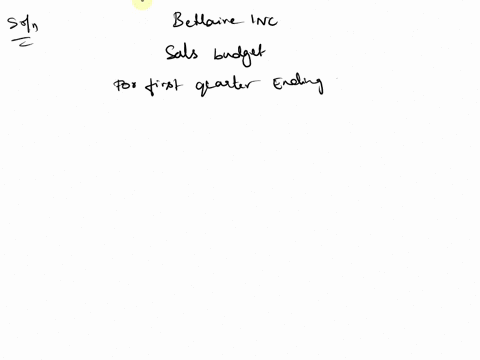 Soln
Betlaire INC
Sals budget
For first quarter Ending